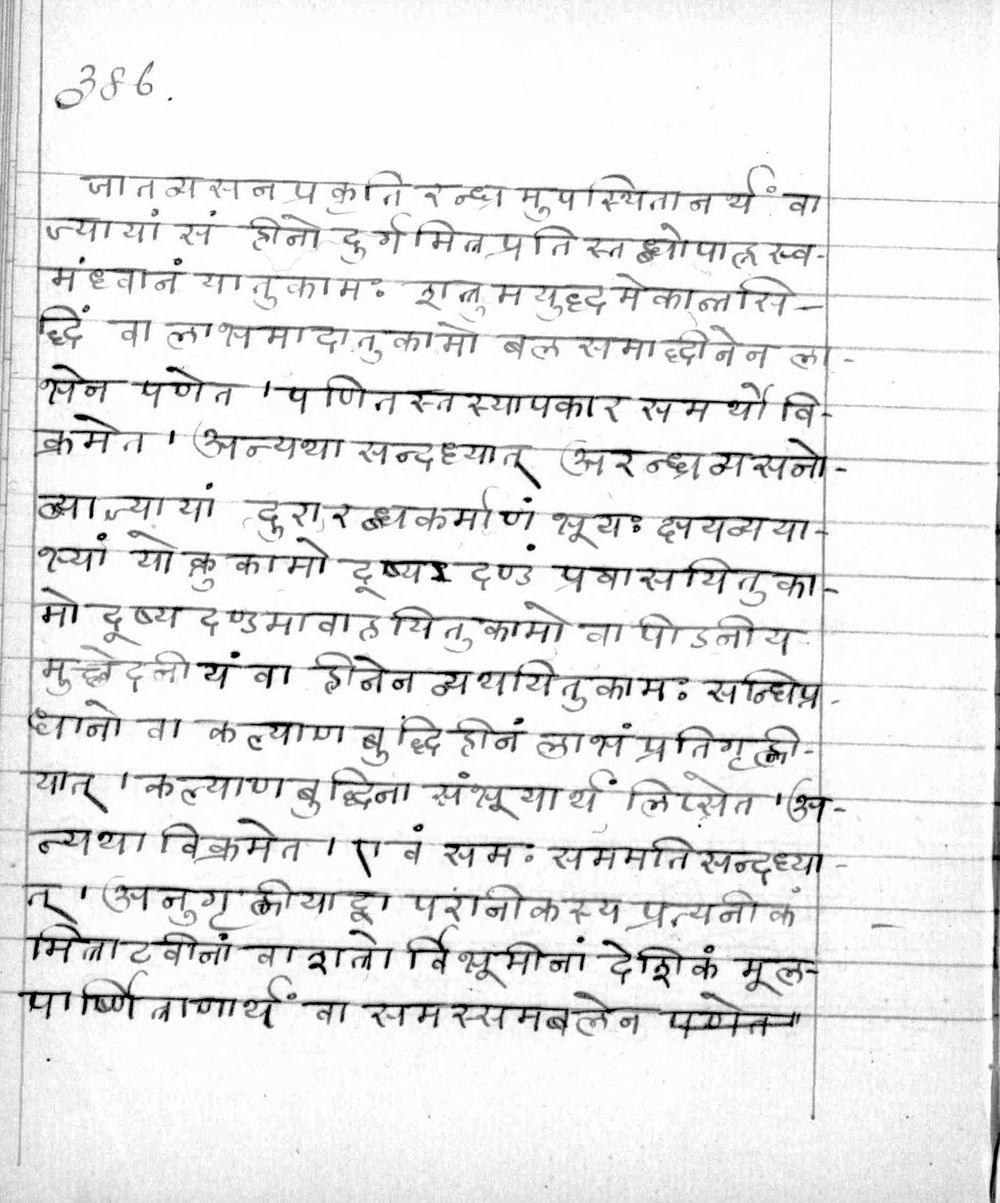 386.
जातव्यसनप्रकृतिरन्ध्रमुपस्थितानर्थं वा
ज्यायां सं हीनो दुर्गमित्रप्रतिस्तब्धोपाह्रस्व-
मंध्वानं यातुकामः शत्रुमयुद्धमेकान्तसि-
द्धिं वा लाभमादातुकामो बलसमाद्धीनेन ला-
भेन पणेत । पणितस्तस्यापकारसमर्थो वि-
क्रमेत । अन्यथा सन्दध्यात् अरन्ध्रव्यसनो-
व्याज्यायां दुरारब्धकर्माणं भूयः क्षयव्यया-
भ्यां योक्तुकामो दूष्य दण्डं प्रवासयितुका-
मो दूष्य दण्डमावाहयितुकामो वा पीडनीय
मुच्छेदनीयं वा हीनेन व्यथयितुकामः सन्धिप्र-
धानो वा कल्याणबुद्धिहीनं लाभं प्रतिगृह्णी-
यात् । कल्याणबुद्धिना संभूयार्थं लिप्सेत । अ-
न्यथा विक्रमेत । एवं समः सममतिसन्दध्या-
त् । अनुगृह्णीयाद्वा परानीकस्य प्रत्यनीकं
मित्राटवीनां वा शत्रोर्विभूमीनां देशिकं मूल-
पार्ष्णित्राणार्थं वा समस्समबलेन पणेत